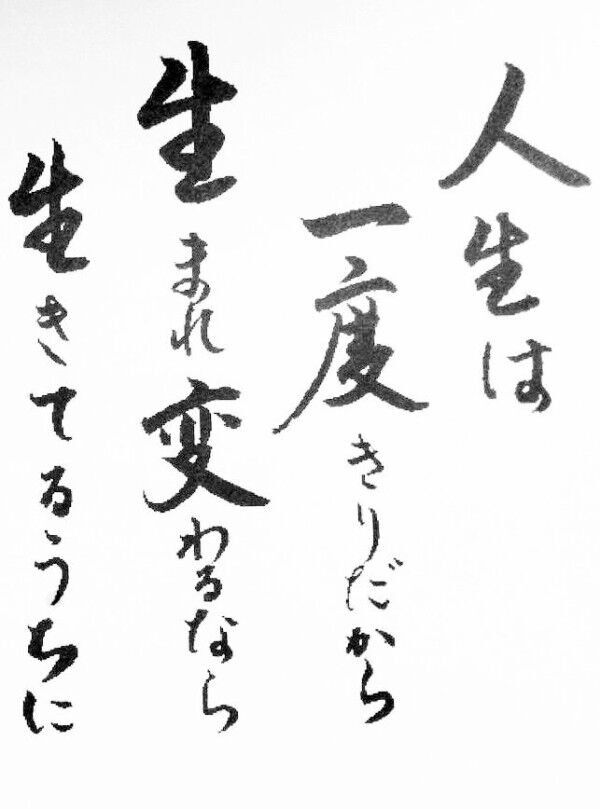 人生は
一度きりだから
生まれ変わるなら
生きてるうちに